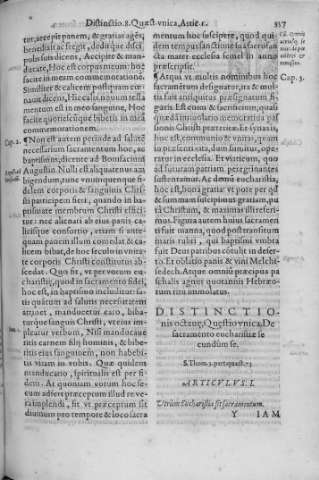 Distinctio.8.Quæst.vnica, Artic.1. 337
tur, accepis panem, & gratias agēs,
benedixit ac fregit, deditque disci
pulis suis dicens, Accipite & man-
ducate, Hoc est corpus meum: hoc
facite in meam commemorationē.
Similiter & calicem postquam cœ-
nauit dicens, Hic calix nouum testa
mentum est in meo sanguine, Hoc
facite quotiescunque bibetis in meā
commemorationem.
Cap. 2.
¶Non est autem periculū ad salutē
necessarium sacramentum hoc, ac
baptismus, dicente ad Bonifacium
Augustin. Nulli est aliquatenus am
bigendum, tunc vnumquemque fi-
delem corporis & sanguinis Chri-
sti participem fieri, quando in ba-
ptismate membrum Christi effici-
tur: nec alienari ab eius panis ca-
licisque consortio, etiam si ante-
quam panem illum comedat & ca-
licem bibat, de hoc seculo in vnita-
te corporis Christi constitutus ab-
scedat. Quo fit, vt per votum eu-
charistiæ, quod in sacramento fidei,
hoc est, in baptismo includitur sa-
tis quātum ad salutis necessitatem
attinet, manducetur caro, biba-
turque sanguis Christi, verum im-
pleatur verbum, Nisi manducaue
ritis carnem filij hominis, & bibe-
ritis eius sanguinem, non habebi-
tis vitam in vobis. Quæ quidem
manducatio, spiritalis est per fi-
dem. At quoniam eorum hoc se-
cum adfert præceptum illud re ve-
ra implendi, fit vt præceptum sit
diuinum pro tempore & loco sacra
mentum hoc suscipere, quod qui
dem tempus sanctione ia sacrosan
cta mater ecclesia semel in anno
præscripsit.
Cap. 3.
¶Atque vt multis nominibus hoc
sacramentum designatur, ita & mul-
tis fuit antiquitus præsignatum fi-
guris. Est eucm & sacrificium, quate
que dā immolatio memoratiua pas
sionis Christi præteritæ. Et synaxis,
hoc est, communio & vnitas, quan-
tum ad præsentem vnitatem, quam
operatur in ecclesia. Et viaticum, quo
ad futuram patriam peregrinantes
sustentantur. Ac demū eucharistia,
hoc est, bona gratia: vt pote per qd
& summam suscipimus gratiam, pu
tà Christum, & maximas illi referi-
mus. Figura autem huius sacramen
ti fuit manna, quod post transitum
maris rubri, qui baptismi vmbra
fuit Deus patribus cōtulit in deser-
to. Et oblatio panis & vini Melchi-
sedech. Atque omniū præcipua pa
schalis agnus quotannis Hebræo-
rum ritu immolatus.
DISTINCTIO-
nis octauæ, Quæstio vnica, De
sacramento eucharistiæ se
cundùm se.
S. Thom. 3. part. quæst. 73.
ARTICVLVS. I.
Vtrùm Eucharistia sit sacramentum.
Y IAM